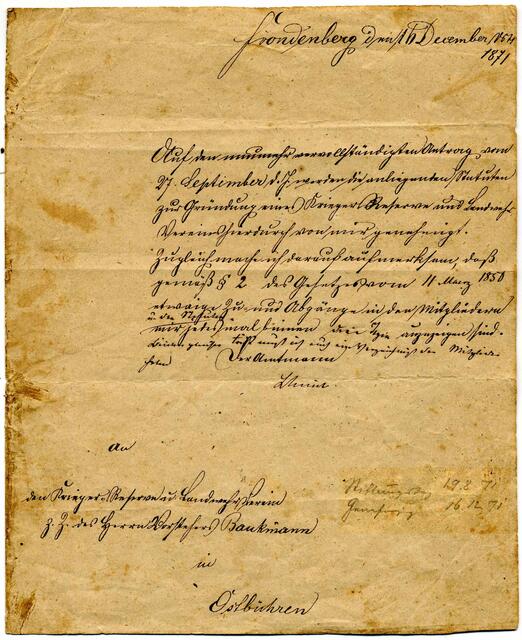 Frondenberg den 16 December
1871
Auf den nunmehr vervollständigten Antrag vom
27. September d. J. werden die anliegenden Statuten
zur Gründung eines Krieger Reserve und Landwehr
Vereins hierdurch von mir genehmigt.
Zugleich mache ich darauf aufmerksam, daß
gemäß § 2 des Gesetzes vom 11 März 1850
etwaige Zu- und Abgänge in den Mitgliedern
u den Statuten
mir jedesmal binnen drei Tagen anzuzeigen sind.
ist auch ein Verzeichniß der Mitglieder
Der Amtmann
An
den Krieger-Reserve u. Landwehr-Verein
z. H. des Herrn Vorstehers Baukmann
in
Ostbühren
Stiftungstag 19.2.71
Genehmig 16.12.71